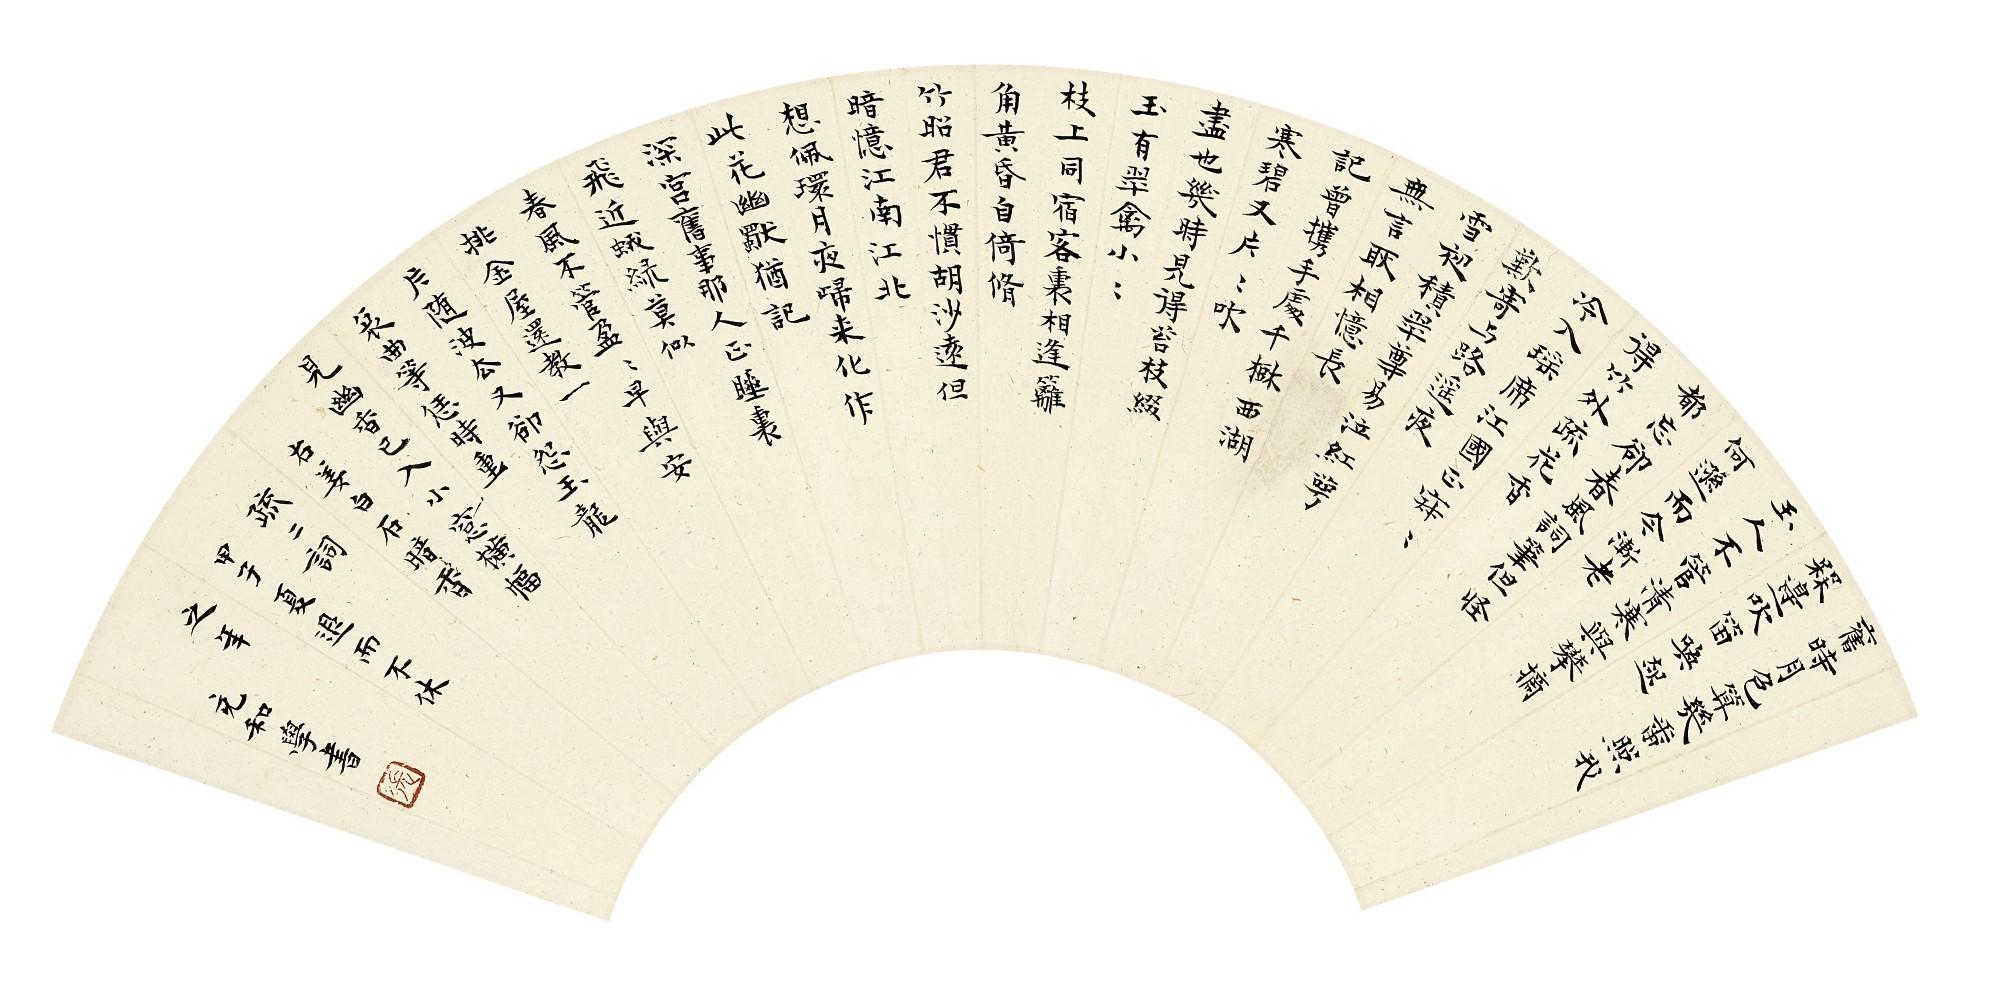 舊時月色算幾番照我
槑邊吹笛喚起
玉人不管清寒與攀摘
何遜而今漸老
都忘卻春風詞筆但怪
得竹外疏花香
冷入瑤席江國正寂〻
歎寄与路遙夜
雪初積翠尊易泣紅萼
無言耿相憶長
記曾攜手處千樹西湖
寒碧又片〻吹
盡也幾時見得苔枝綴
玉有翠禽小〻
枝上同宿客裏相逢籬
角黃昏自倚脩
竹昭君不慣胡沙遠但
暗憶江南江北
想佩環月夜歸來化作
此花幽獨猶記
深宮舊事那人正睡裏
飛近蛾綠莫似
春風不管盈〻早與安
排金屋還教一
片隨波去又卻怨玉龍
哀曲等恁時重
見幽香已入小窗橫幅
右姜白石暗香
疏二詞
甲子夏退而不休
之年 充和學書